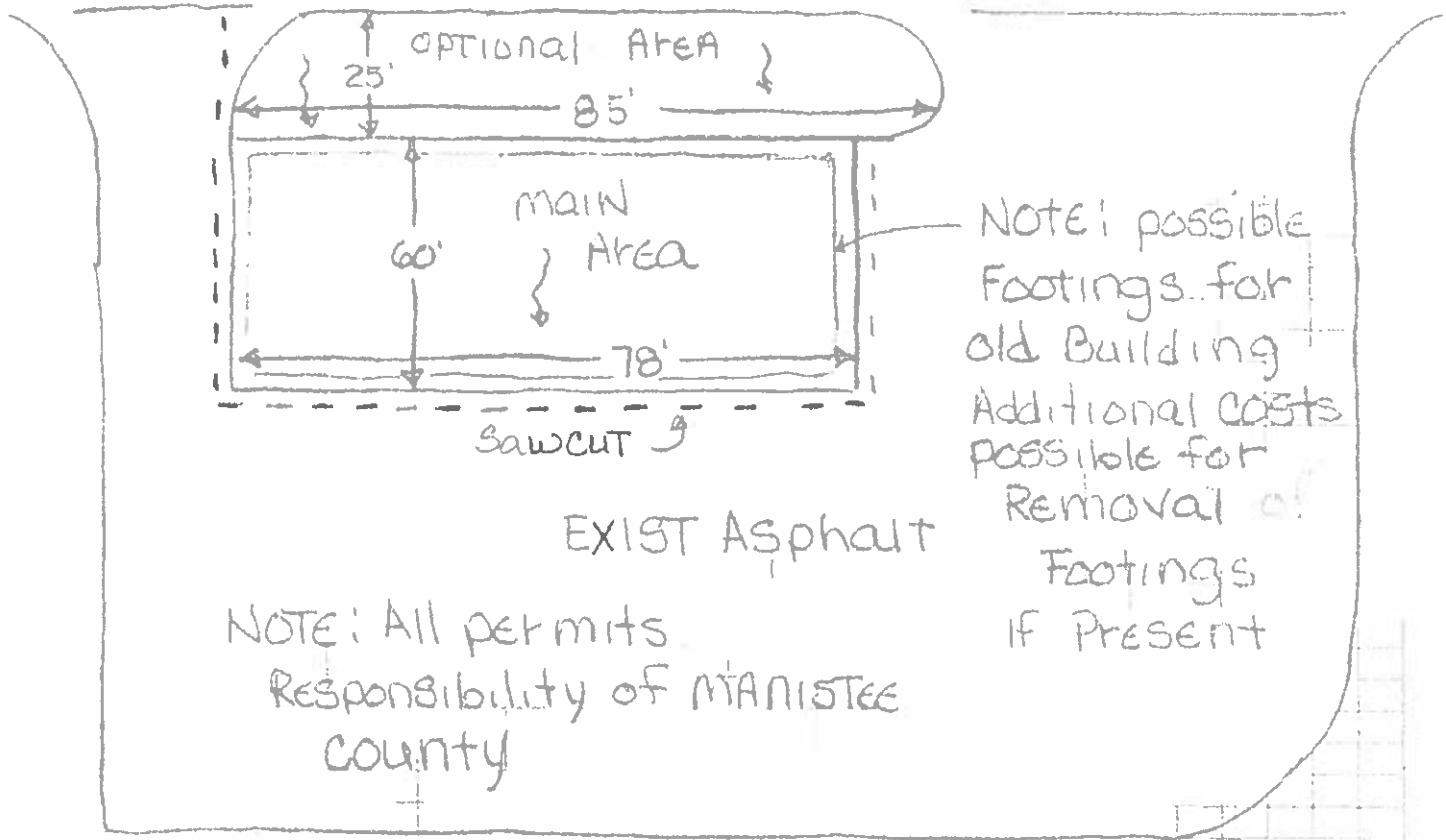 OPTIONAL AREA
25'
85'
MAIN
AREA
60'
78'
SAWCUT
NOTE: possible
Footings for
old Building
Additional costs
possible for
Removal of
Footings
IF Present
EXIST Asphalt
NOTE: All permits
Responsibility of MANISTEE
county